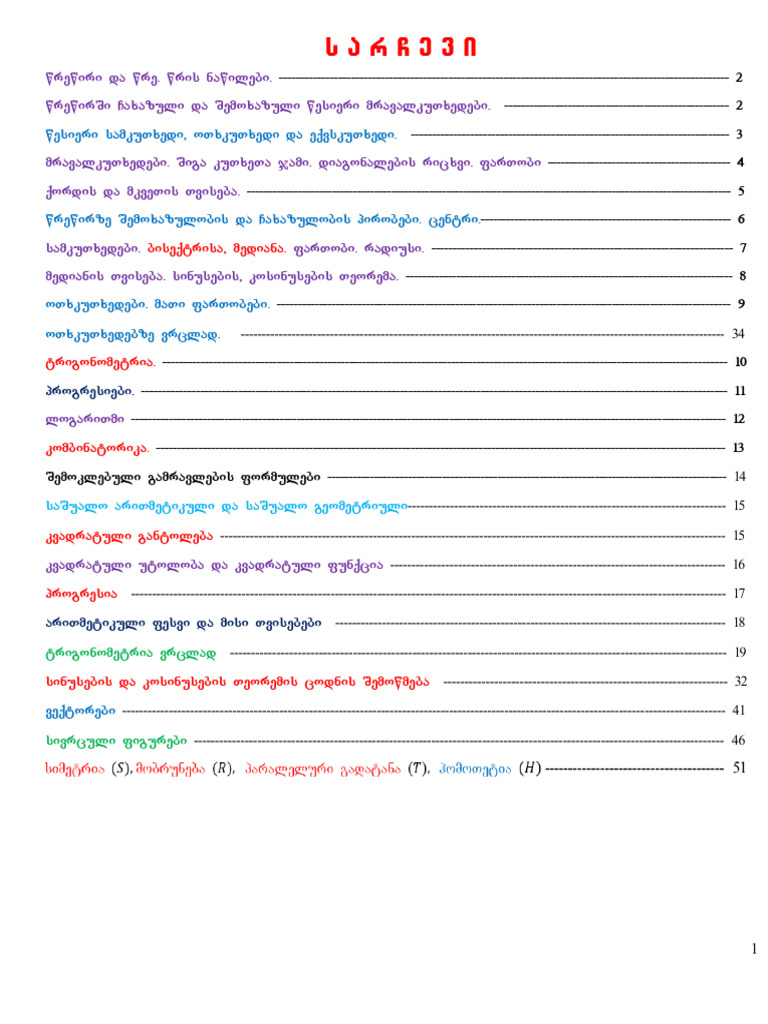 სარჩევი
წრეწირი და წრე. წრის ნაწილები. ---------- 2
წრეწირში ჩახაზული და შემოხაზული წესიერი მრავალკუთხედები. ---------- 2
წესიერი სამკუთხედი, ოთხკუთხედი და ექვსკუთხედი. ---------- 3
მრავალკუთხედები. შიგა კუთხეთა ჯამი. დიაგონალების რიცხვი. ფართობი ---------- 4
ქორდის და მკვეთის თვისება. ---------- 5
წრეწირზე შემოხაზულობის და ჩახაზულობის პირობები. ცენტრი.---------- 6
სამკუთხედები. ბისექტრისა, მედიანა. ფართობი. რადიუსი. ---------- 7
მედიანის თვისება. სინუსების, კოსინუსების თეორემა. ---------- 8
ოთხკუთხედები. მათი ფართობები. ---------- 9
ოთხკუთხედებზე ვრცლად. ---------- 34
ტრიგონომეტრია. ---------- 10
პროგრესიები. ---------- 11
ლოგარითმი ---------- 12
კომბინატორიკა. ---------- 13
შემოკლებული გამრავლების ფორმულები ---------- 14
საშუალო არითმეტიკული და საშუალო გეომეტრიული---------- 15
კვადრატული განტოლება ---------- 15
კვადრატული უტოლობა და კვადრატული ფუნქცია ---------- 16
პროგრესია ---------- 17
არითმეტიკული ფესვი და მისი თვისებები ---------- 18
ტრიგონომეტრია ვრცლად ---------- 19
სინუსების და კოსინუსების თეორემის ცოდნის შემოწმება ---------- 32
ვექტორები ---------- 41
სივრცული ფიგურები ---------- 46
სიმეტრია (S), მობრუნება (R), პარალელური გადატანა (T), ჰომოთეტია (H) ---------- 51
1